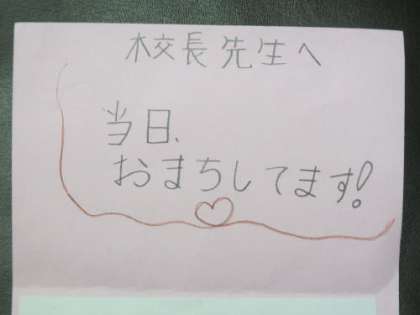 校長先生へ
当日、
おまちしてます!